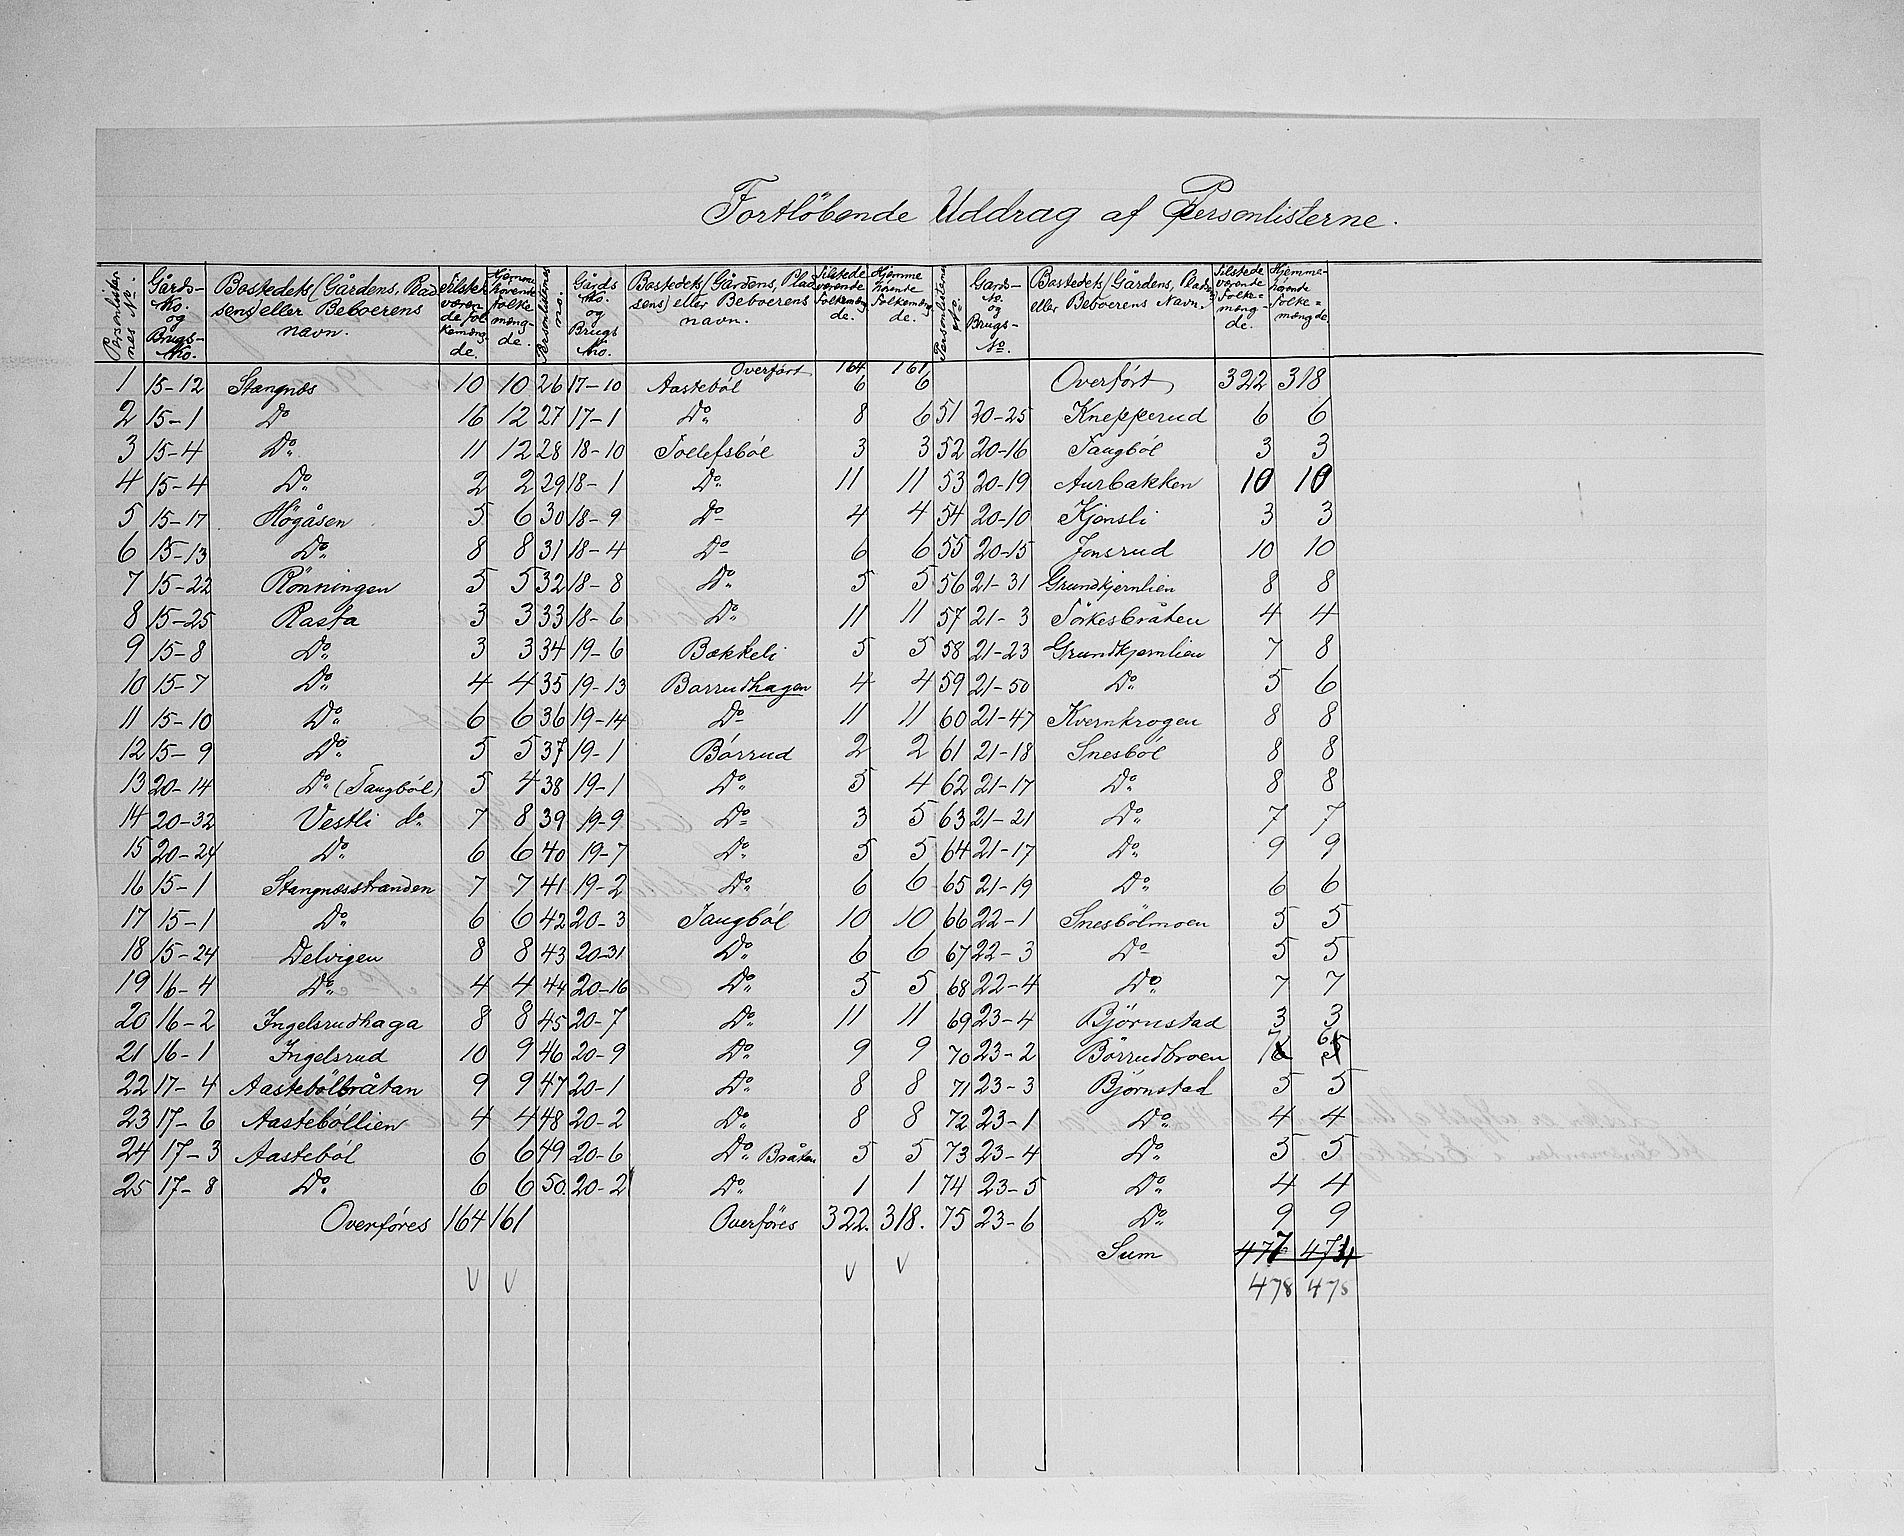 Fortlöbende Uddrag af Personlisterne.
Personlister-nes No. | Gårds-No. og Brugs-No. | Bostedets (Gårdens, Plad sens) eller Beboerens navn. | Tilstede væren de Fol kemæng de. | Hjemme hörende folke mæng-de. | Personlisternes no. | Gårds No. og Brugs No. | Bostedets (Gårdens, Plad sens) eller Beboerens navn. | Tilstede værende Folkemæng de. | Hjemme hörende Folkemæng de. | Personlisternes No. | Gards-No. og Brugs-No. | Bostedets (Gårdens, Pladsens) eller Beboerens Navn. | Tilstede værende Folke=mæng=de. | Hjemme-hörende folke=mængde.
Overfört 164 161
1 15-12 Stangnæs 10 10 26 17-10 Aasteböl 6 6 Overfört 322 318
2 15-1 Do 16 12 27 17-1 Do 8 6 51 20-25 Knepperud 6 6
3 15-4 Do 11 12 28 18-10 Toelefsböl 3 3 52 20-16 Taugböl 3 3
4 15-4 Do 2 2 29 18-1 Do 11 11 53 20-19 Aurbakken 10 10
5 15-17 Högåsen 5 6 30 18-9 Do 4 4 54 20-10 Kjensli 3 3
6 15-13 Do 8 8 31 18-4 Do 6 6 55 20-15 Jonsrud 10 10
7 15-22 Rönningen 5 5 32 18-8 Do 5 5 56 21-31 Grundkjernlien 8 8
8 15-25 Rasta 3 3 33 18-6 Do 11 11 57 21-3 Törkesbråten 4 4
9 15-8 Do 3 3 34 19-6 Bækkeli 5 5 58 21-23 Grundkjernlien 7 8
10 15-7 Do 4 4 35 19-13 Borrudhagen 4 4 59 21-50 Do 5 6
11 15-10 Do 6 6 36 19-14 Do 11 11 60 21-47 Kvernkrogen 8 8
12 15-9 Do 5 5 37 19-1 Börrud 2 2 61 21-18 Snesböl 8 8
13 20-14 Do (Taugböl) 5 4 38 19-1 Do 5 4 62 21-17 Do 8 8
14 20-32 Vestli do 7 8 39 19-9 Do 3 5 63 21-21 Do 7 7
15 20-24 Do 6 6 40 19-7 Do 5 5 64 21-17 Do 9 9
16 15-1 Stangnæsstranden 7 7 41 19-2 Do 6 6 65 21-19 Do 6 6
17 15-1 Do 6 6 42 20-3 Taugböl 10 10 66 22-1 Snesbölmoen 5 5
18 15-24 Delvigen 8 8 43 20-31 Do 6 6 67 22-3 Do 5 5
19 16-4 Do 4 4 44 20-16 Do 5 5 68 22-4 Do 7 7
20 16-2 Ingelsrudhaga 8 8 45 20-7 Do 11 11 69 23-4 Björnstad 3 3
21 16-1 Ingelsrud 10 9 46 20-9 Do 9 9 70 23-2 Börrudbroen
22 17-4 Aastebölbråtan 9 9 47 20-1 Do 8 8 71 23-3 Björnstad 5 5
23 17-6 Aasteböllien 4 4 48 20-2 Do 8 8 72 23-1 Do 4 4
24 17-3 Aasteböl 6 6 49 20-6 Do Bråten 5 5 73 23-4 Do 5 5
25 17-8 Do 6 6 50 20-2 Do 1 1 74 23-5 Do 4 4
Overföres 164 161 Overföres 322. 318. 75 23-6 Do 9 9
Sum 477 4731
478 478